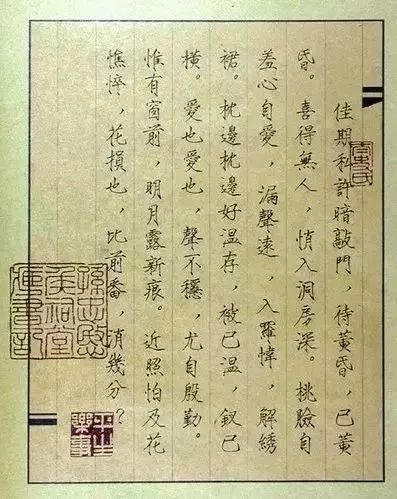 佳期私許暗敲門，待黃昏，已黃
昏。喜得無人，悄入洞房深。桃臉自
羞心自愛，漏聲遠，入羅幃，解綉
裙。枕邊枕邊好溫存，被已溫，釵已
橫。愛也愛也，聲不穩，尤自殷勤。
惟有窗前，明月露新痕。近照怕及花
憔悴，花損也，比前番，消幾分？
孫忠愍
侯祠堂